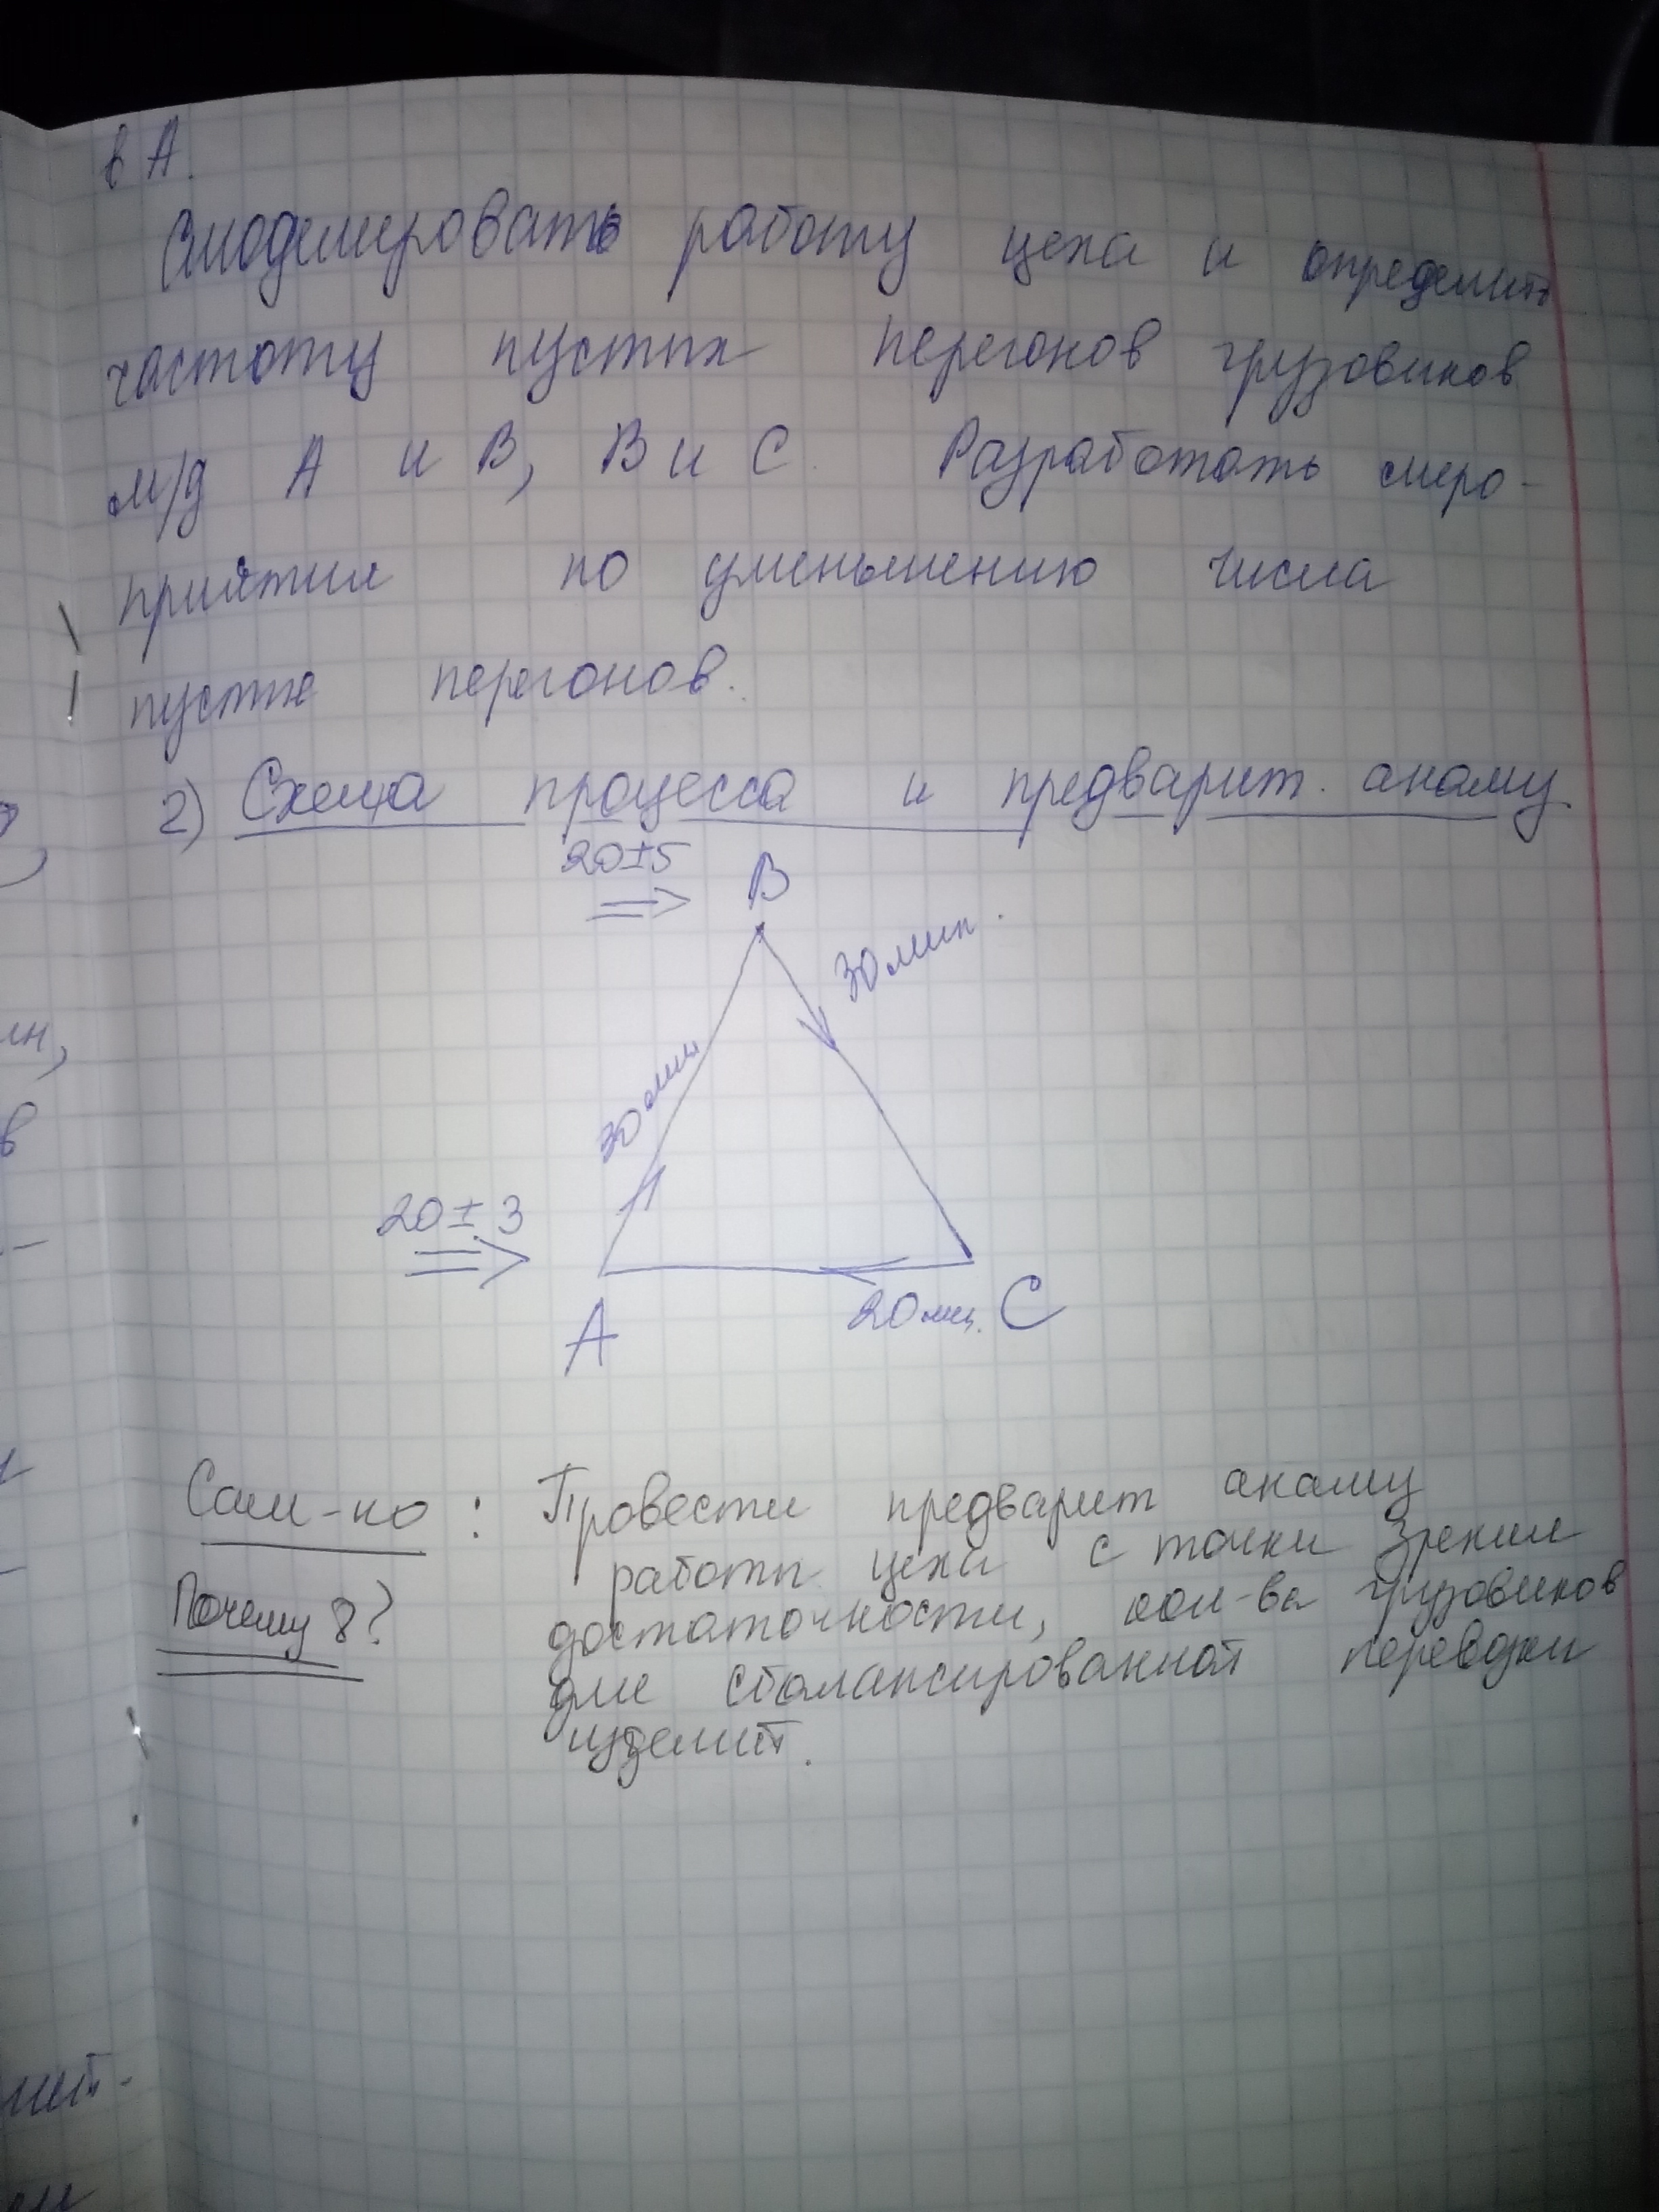 в А.
Смоделировать работу цеха и определить
частоту пустых перегонов грузовиков
м/д А и В, В и С. Разработать меро-
приятия по уменьшению числа
пустых перегонов.
2) Схема процесса и предварит. анализ
20±5
В
30 мин.
30 мин
20±3
20 мин.
С
А
Сам-но: Провести предварит анализ
работы цеха с точки зрения
Почему 8?
достаточности, кол-ва грузовиков
для сбалансированной перевозки
изделий.